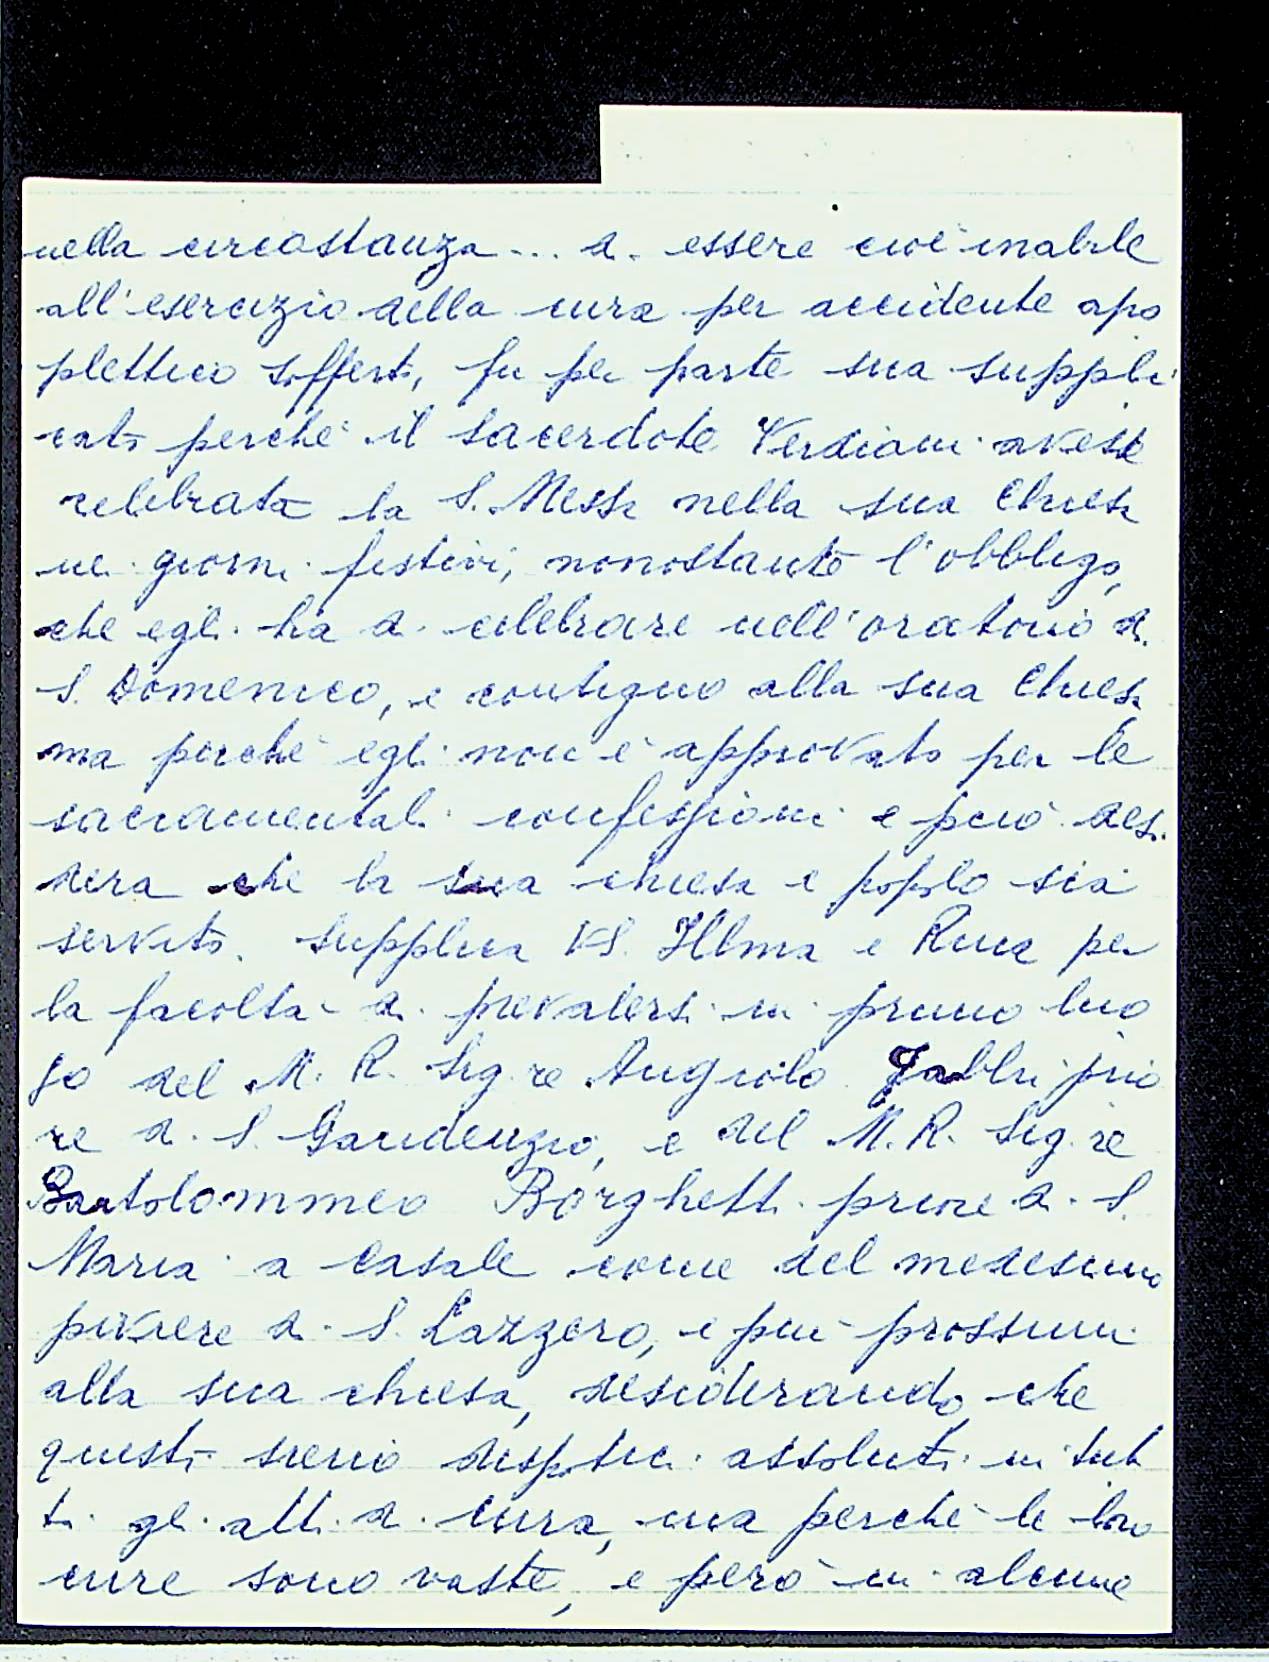 nella circostanza ... di essere cioè inabile
all'esercizio della cura per accidente apo
plettico sofferto, fu per parte sua suppli
cato perchè il sacerdote Verdiani avesse
celebrata la S. Messa nella sua Chiesa
nei giorni festivi, nonostante l'obbligo,
che egli ha di celebrare nell'oratorio di
S. Domenico, e contiguo alla sua Chiesa
ma perchè egli non è approvato per le
sacramentali confessioni e però desi
dera che la sua chiesa e popolo sia
servito. Supplica VS. Illma e Rma per
la facoltà di prevalersi in primo luo
go del M. R. Sig.re Angiolo Fabbri prio
re di S. Gaudenzio, e del M. R. Sig.re
Bartolommeo Borghetti priore di S.
Maria a Casale come del medesimo
piviere di S. Lazzero, e più prossimi
alla sua chiesa, desiderando che
questi sieno dispotici assoluti in tut
ti gli atti di cura, ma perchè le loro
cure sono vaste, e però in alcune